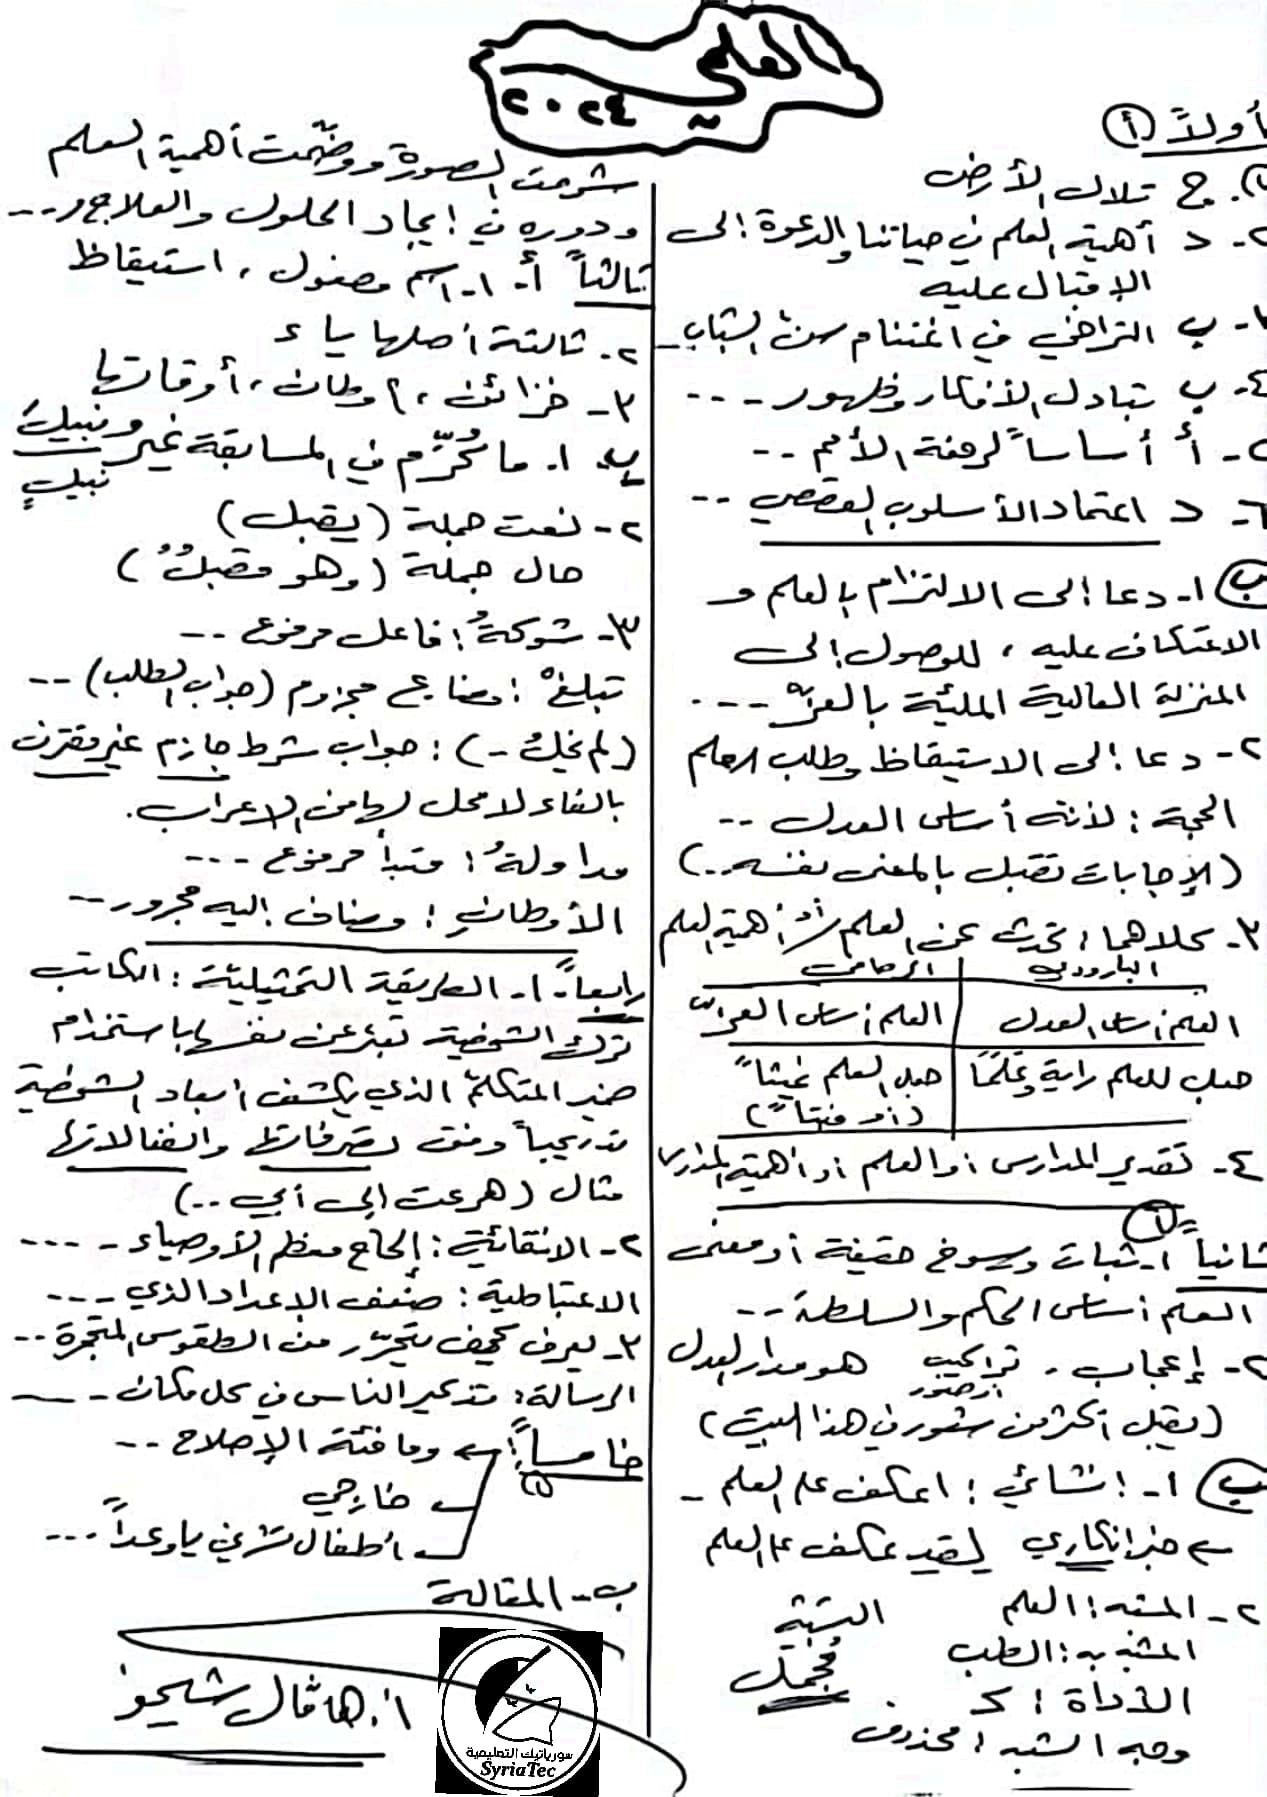 العلمي
٢٠٢٤
أولاً (أ)
١. ج تلال الأرض
٢- د أهمية العلم في حياتنا والدعوة إلى
الإقبال عليه
٣- ب التراخي في اغتنام سن الشباب -
٤- ب تبادل الأفكار وظهور - - -
٥- أ أساساً لرفعة الأمم - -
٦- د اعتماد الأسلوب القصصي - -
ب ١- دعا إلى الالتزام بالعلم و
الاعتكاف عليه ، للوصول إلى
المنزلة العالية المليئة بالعز - - -
٢- دعا إلى الاستيقاظ وطلب العلم
الحجة : لأنه أساس العدل - -
(الإجابات تقبل بالمعنى نفسه ..)
٣- كلاهما : تحدث عن العلم / أو أهمية العلم
البارودي | الرصافي
العلم أساس العدل | العلم أساس العز
جعل للعلم راية وعلماً | جعل العلم غيثاً
(أو فيثاً)
٤- تقدير المدارس أو العلم أو أهمية المدارس
ثانياً (أ) ١- ثبات ورسوخ حقيقة أو معنى
العلم أساس الحكم والسلطة - -
٢- إعجاب . تراكيب هو مدار العدل
أو صور
(يقبل أكثر من شعور في هذا البيت)
ب ١- إنشائي : اعكف على العلم -
← خبر إنكاري لقد عكف على العلم
٢- المشبه : العلم التشبيه
المشبه به : الطب مُجمَل
الأداة : كـ
وجه الشبه : محذوف
شرحت الصورة ووضّحت أهمية العلم
ودوره في إيجاد الحلول والعلاج و - - -
ثالثاً أ- ١- اسم مفعول ، استيقاظ
٢- ثالثة أصلها ياء
٣- خزائن ، أوطان ، أوقاتها
ب ١. ما كُرِّم في المسابقة غير ونبيلَ
نبيلٍ
٢- نعت جملة (يقبل)
حال جملة (وهو مقبلٌ)
٣- شوكةُ : فاعل مرفوع - -
تبلغْ : مضارع مجزوم (جواب الطلب) - -
(لم يخلُ -) : جواب شرط جازم غير مقترن
بالفاء لا محل لها من الإعراب .
مداولةُ : مبتدأ مرفوع - - -
الأوطانِ : مضاف إليه مجرور - -
رابعاً - ١- الطريقة التمثيلية : الكاتب
ترك الشخصية تعبّر عن نفسها باستخدام
ضمير المتكلم الذي يكشف أبعاد الشخصية
تدريجياً وفق تصرفاتها وانفعالاتها
مثال (هرعت إلى أبي ..)
٢- الانتقائية : إلحاح معظم الأوصياء - - -
الاعتباطية : ضعف الإعداد الذي - - -
٣- ليعرف كيف يتحرّر من الطقوس المتحجرة - -
الرسالة : تذكير الناس في كل مكان - -
خامساً : ← وما فئة الإصلاح - -
(١)
← خارجي
← أطفال تشرين يا وعداً - - -
ب - المقالة
أ. هافال شيخو
سورياتيك التعليمية
SyriaTec